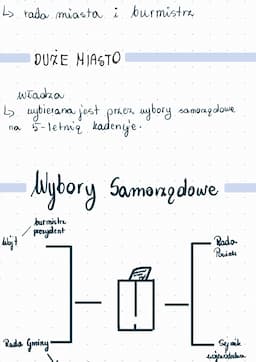 ↳ rada miasta i burmistrz
DUŻE MIASTO
władza
↳ wybierana jest przez wybory samorządowe
na 5-letnią kadencje.
Wybory Samorządowe
burmistrz
prezydent
Wójt
Rada
Powiatu
Rada Gminy
Sejmik
województwa